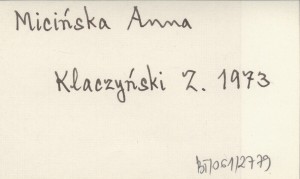 Micińska Anna
Kłaczyński Z. 1973
BT/061/2779